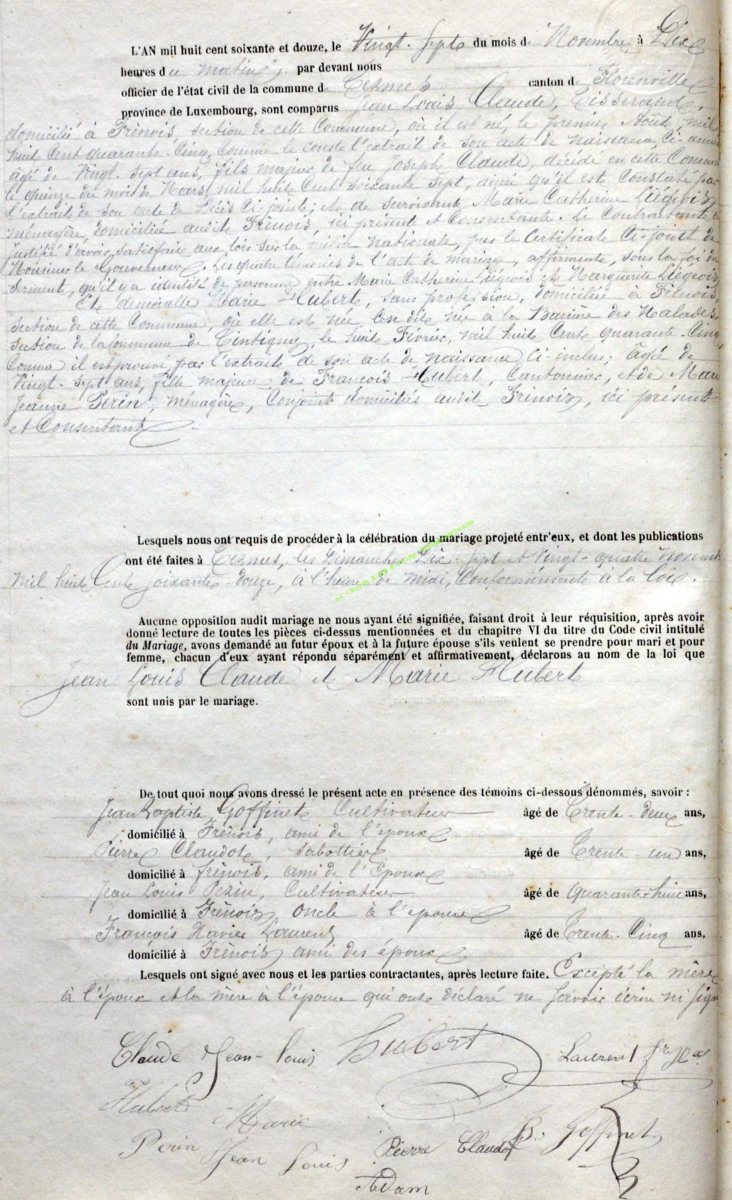 L'AN mil huit cent soixante et douze, le Vingt-Sept du mois de Novembre à Dix
heures du matin, par devant nous
officier de l'état civil de la commune de Termes canton de Florenville
province de Luxembourg, sont comparus Jean Louis Claude, Tisserand,
domicilié à Frénois section de cette Commune, où il est né, le premier Août mil
huit Cent quarante-Cinq, comme le conste l'extrait de son acte de naissance Ci-annexé
agé de Vingt-sept ans, fils majeur de feu Joseph Claude, décédé en cette Commune
le quinze du mois de Mars mil huit Cent soixante sept, ainsi qu'il est Constaté par
l'extrait de son acte de Décès Ci-joint; et de survivant Marie Catherine Liégeois
ménagère domiciliée audit Frénois, ici présente et Consentante. Le Contractant a
justifié d'avoir satisfait aux lois sur la milice nationale, par le Certificat Ci-joint de
Monsieur le Gouverneur. Les quatre témoins de l'acte de mariage, affirment, sous la foi du
serment, qu'il y a identité de personne entre Marie Catherine Liégeois et Marguerite Liégeois
Et demoiselle Marie Hubert, sans profession, domiciliée à Frénois,
section de cette Commune, où elle est née à la Barrière des Malades,
section de la commune de Tintigny, le huit Février, mil huit Cent quarante-Cinq
Comme il est prouvé par l'extrait de son acte de naissance Ci-inclus; âgée de
Vingt-sept ans, fille majeure de François Hubert, Cantonnier, et de Marie
Jeanne Perin, ménagère, Conjoints domiciliés audit Frénois, ici présents
et Consentants
Lesquels nous ont requis de procéder à la célébration du mariage projeté entr'eux, et dont les publications
ont été faites à Termes, les Dimanches Dix-sept et Vingt-quatre novembre
mil huit Cent soixante-douze, à l'heure de midi, Conformément à la loi.
Aucune opposition audit mariage ne nous ayant été signifiée, faisant droit à leur réquisition, après avoir
donné lecture de toutes les pièces ci-dessus mentionnées et du chapitre VI du titre du Code civil intitulé
du Mariage, avons demandé au futur époux et à la future épouse s'ils veulent se prendre pour mari et pour
femme, chacun d'eux ayant répondu séparément et affirmativement, déclarons au nom de la loi que
Jean Louis Claude et Marie Hubert
sont unis par le mariage.
De tout quoi nous avons dressé le présent acte en présence des témoins ci-dessous dénommés, savoir :
Jean Baptiste Goffinet Cultivateur âgé de Trente-deux ans,
domicilié à Frénois, ami de l'époux
Pierre Claudot, Sabottier âgé de Trente-un ans,
domicilié à frénois, ami de l'Epoux
Jean Louis Perin, Cultivateur âgé de Quarante-huit ans,
domicilié à Frénois oncle à l'épouse
François Xavier Laurent âgé de Trente-Cinq ans,
domicilié à Frénois ami des époux
Lesquels ont signé avec nous et les parties contractantes, après lecture faite. Excepté la mère
à l'époux et la mère à l'épouse qui ont déclaré ne savoir écrire ni signer
Claude Jean-louis Hubert Laurent
Hubert Marie
Perin Jean Louis Pierre Claudot Goffinet
Adam